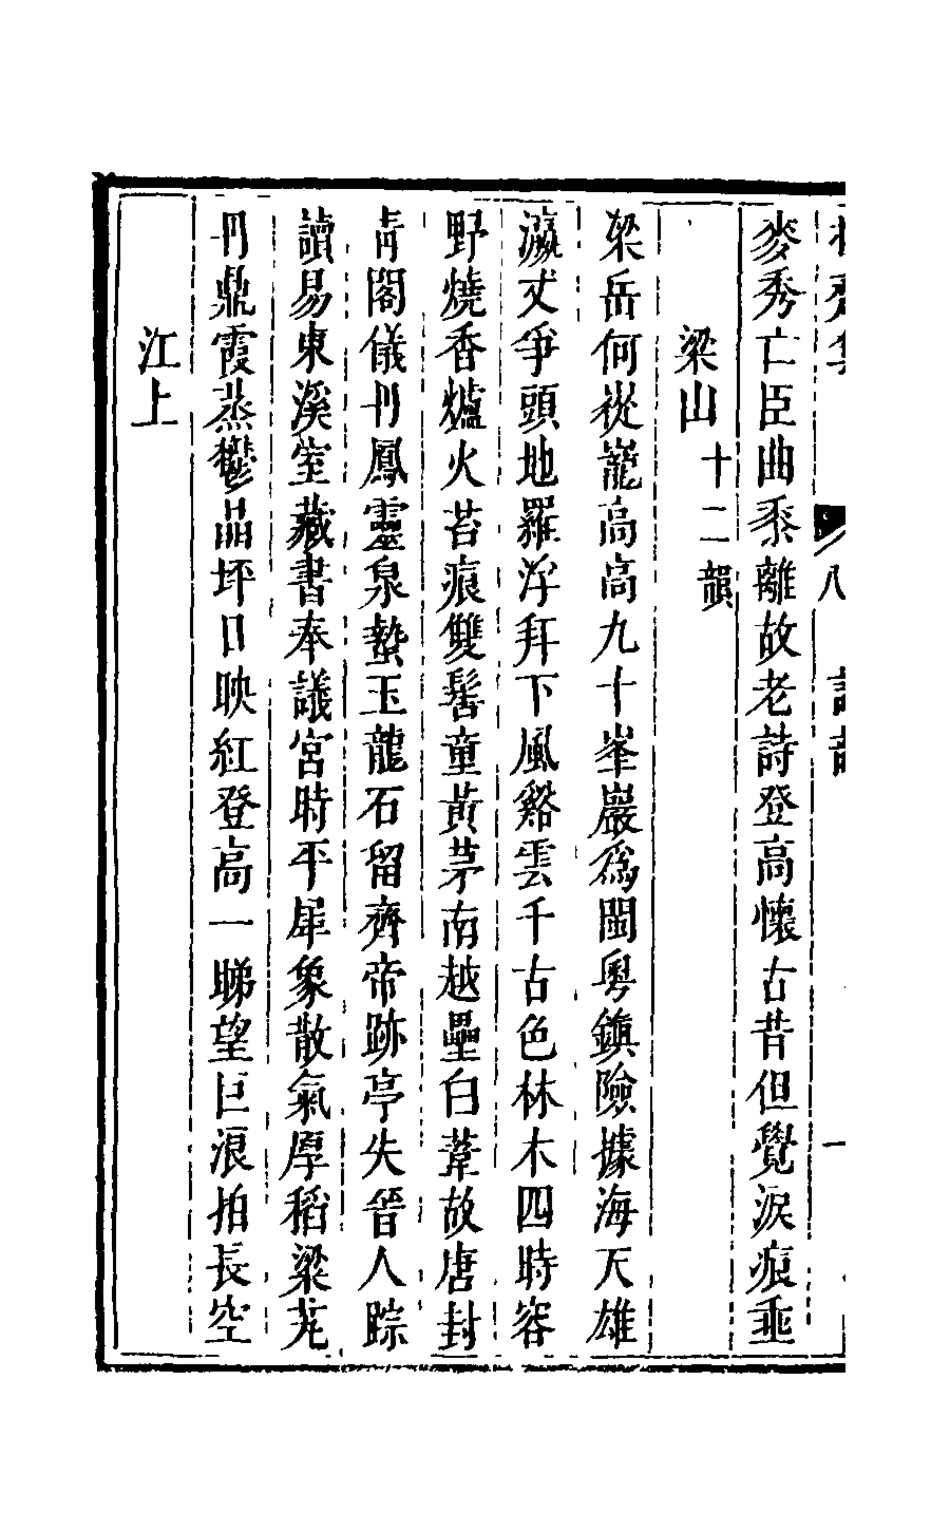 麥秀亡臣曲黍離故老詩登高懷古昔但覺淚痕垂
梁山十二韻
梁岳何嵸巃高高九十峯巖為閩粵鎮險據海天雄
瀛丈爭頭地羅浮拜下風谿雲千古色林木四時容
野燒香爐火苔痕雙髻童黃茅南越壘白葦故唐封
靑閣儀丹鳳靈泉蟄玉龍石留齊帝跡亭失晉人踪
讀易東溪室藏書奉議宮時平犀象散氣厚稻粱芃
丹鼎霞蒸鬱晶坪日映紅登高一睇望巨浪拍長空
江上